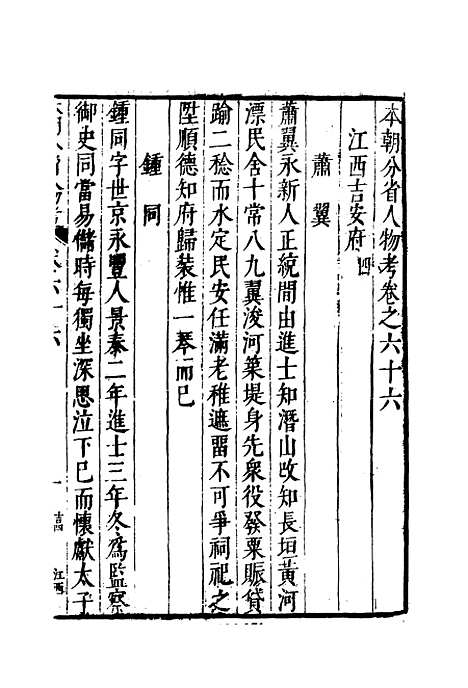 本朝分省人物考卷之六十六
江西吉安府四
蕭翼
蕭翼永新人正統間由進士知潛山改知長垣黃河
漂民舍十常八九翼浚河築堤身先衆役發粟賑貸
踰二稔而水定民安任滿老稚遮畱不可爭祠祀之
陞順德知府歸裝惟一琴而已
鍾同
鍾同字世京永豐人景泰二年進士三年冬爲監察
御史同當易儲時每獨坐深思泣下已而懷獻太子
卷六十六
一
吉四
江西